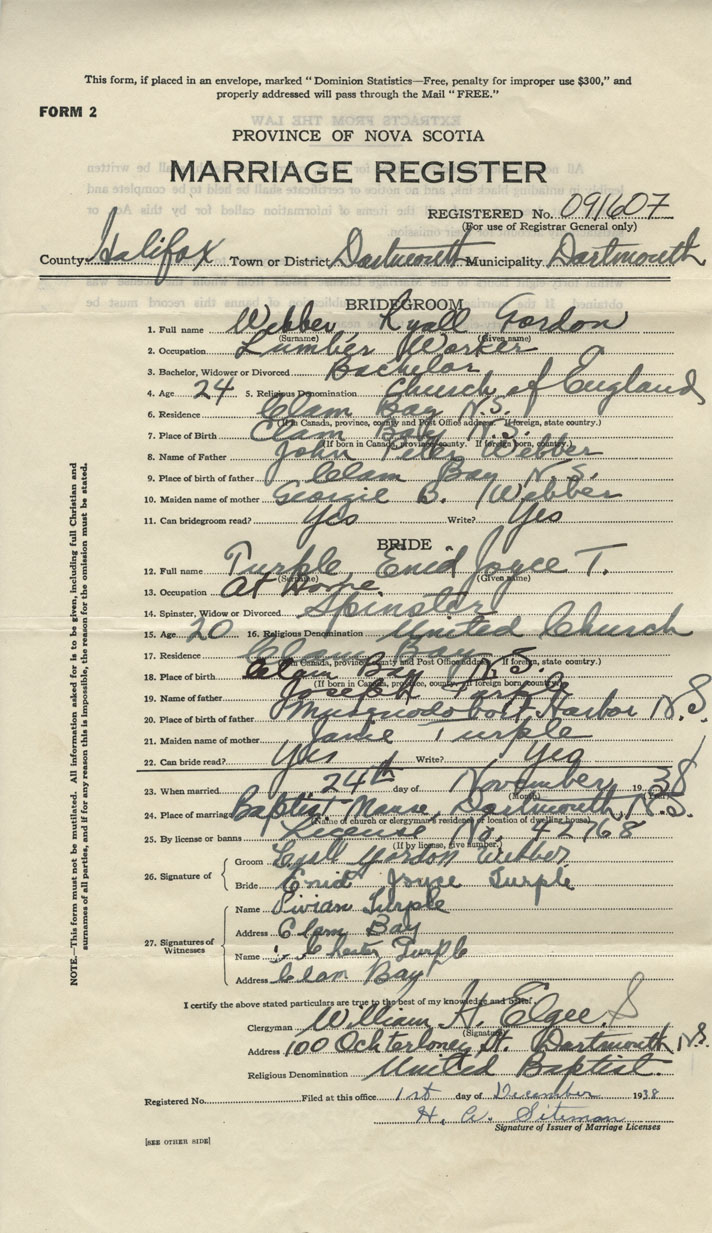 This form, if placed in an envelope, marked "Dominion Statistics—Free, penalty for improper use $300," and
properly addressed will pass through the Mail "FREE."
FORM 2
PROVINCE OF NOVA SCOTIA
MARRIAGE REGISTER
REGISTERED No. 091607
(For use of Registrar General only)
County Halifax Town or District Dartmouth Municipality Dartmouth
BRIDEGROOM
1. Full name Webber Lyall Gordon
(Surname) (Given name)
2. Occupation Lumber Worker
3. Bachelor, Widower or Divorced Bachelor
4. Age 24 5. Religious Denomination Church of England
6. Residence Clam Bay N.S.
(If in Canada, province, county and Post Office address. If foreign, state country.)
7. Place of Birth Clam Bay N.S.
(If born in Canada, province, county. If foreign born, country.)
8. Name of Father John Peter Webber
9. Place of birth of father Clam Bay N.S.
10. Maiden name of mother Georgie B. Webber
11. Can bridegroom read? Yes Write? Yes
BRIDE
12. Full name Turple Enid Joyce T.
(Surname) (Given name)
13. Occupation At Home
14. Spinster, Widow or Divorced Spinster
15. Age 20 16. Religious Denomination United Church
17. Residence Clam Bay
(If in Canada, province, county and Post Office address. If foreign, state country.)
18. Place of birth Clam Bay N.S.
(If born in Canada, province, county, If foreign born, country.)
19. Name of father Joseph Turple
20. Place of birth of father Musquodoboit Harbor N.S.
21. Maiden name of mother Janie Turple
22. Can bride read? Yes Write? Yes
23. When married 24th day of November 1938
(Month) (Year)
24. Place of marriage Baptist Manse, Dartmouth, N.S.
(Name of church or clergyman's residence or location of dwelling house)
25. By license or banns License No. 42768
(If by license, give number.)
26. Signature of
Groom Lyall Gordon Webber
Bride Enid Joyce Turple
27. Signatures of Witnesses
Name Vivian Turple
Address Clam Bay
Name Chester Turple
Address Clam Bay
I certify the above stated particulars are true to the best of my knowledge and belief.
Clergyman William H. Elgee
(Signature)
Address 100 Ochterloney St. Dartmouth N.S.
Religious Denomination United Baptist.
Registered No. Filed at this office 1st day of December 1938
H. A. Siteman
Signature of Issuer of Marriage Licenses
[SEE OTHER SIDE]
NOTE.—This form must not be mutilated. All information asked for is to be given, including full Christian and
surnames of all parties, and if for any reason this is impossible, the reason for the omission must be stated.